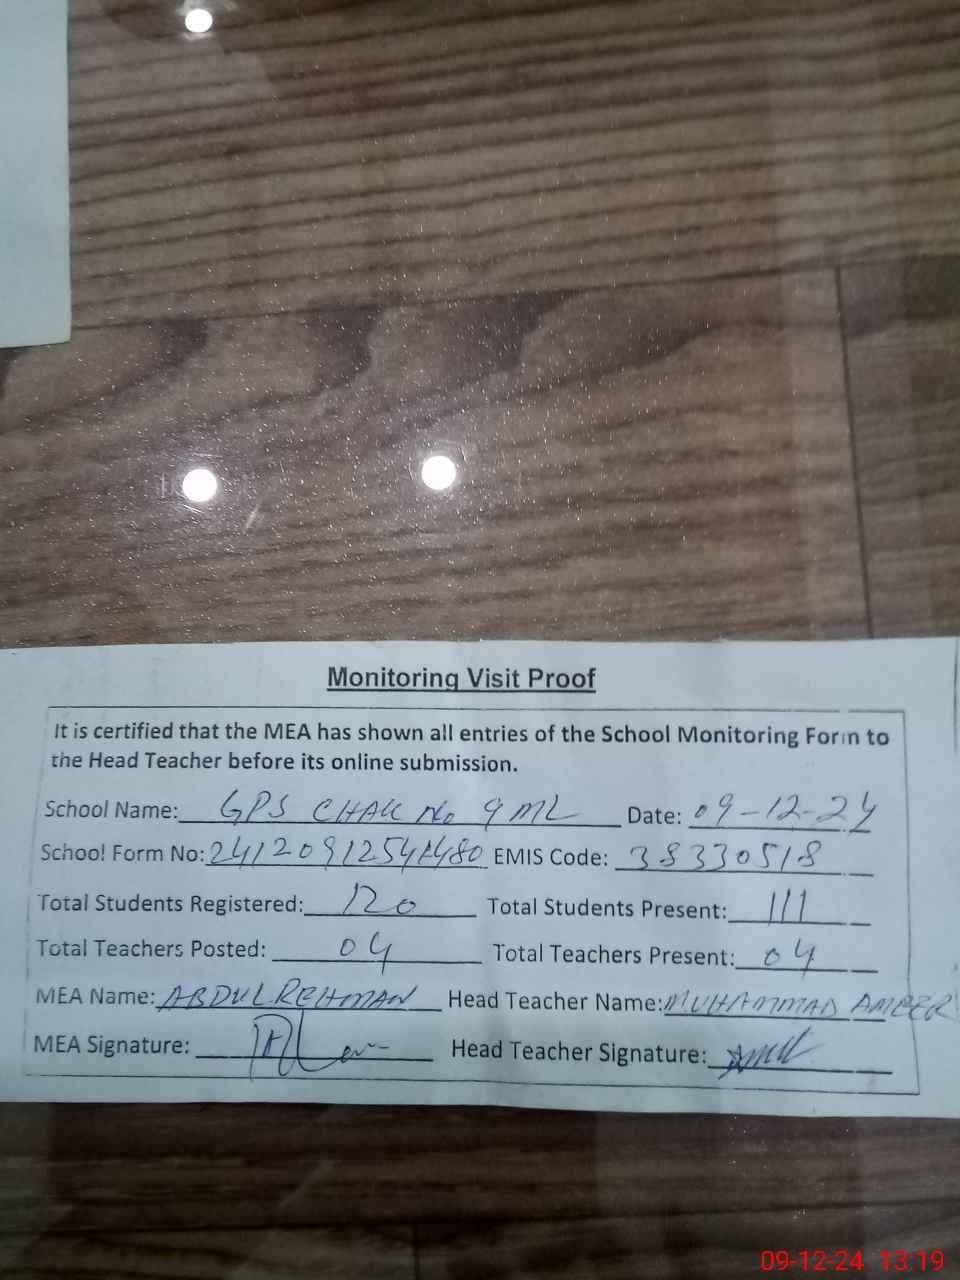 Monitoring Visit Proof
It is certified that the MEA has shown all entries of the School Monitoring Form to
the Head Teacher before its online submission.
School Name: GPS CHAK No 9 ML Date: 09-12-24
School Form No: EMIS Code: 38330518
Total Students Registered: 120 Total Students Present: 111
Total Teachers Posted: 04 Total Teachers Present: 04
MEA Name: ABDUL REHMAN Head Teacher Name: MUHAMMAD AMEER
MEA Signature: Head Teacher Signature:
09-12-24 13:19